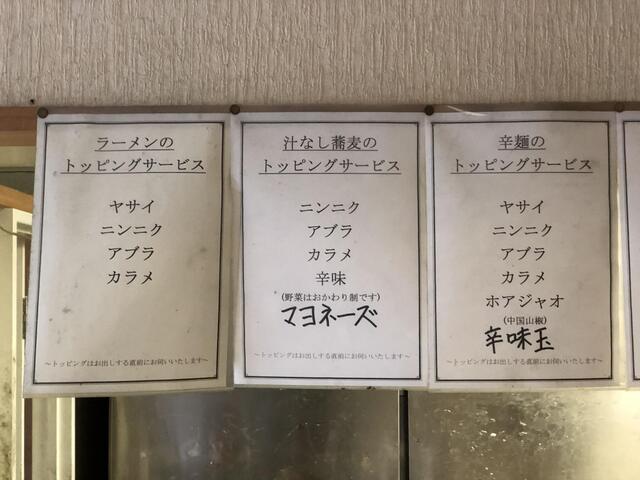 ラーメンの
トッピングサービス
ヤサイ
ニンニク
アブラ
カラメ
～トッピングはお出しする直前にお伺いいたします～
汁なし蕎麦の
トッピングサービス
ニンニク
アブラ
カラメ
辛味
(野菜はおかわり制です)
マヨネーズ
～トッピングはお出しする直前にお伺いいたします～
辛麺の
トッピングサービス
ヤサイ
ニンニク
アブラ
カラメ
ホアジャオ
(中国山椒)
辛味玉
～トッピングはお出しする直前にお伺いいたします～